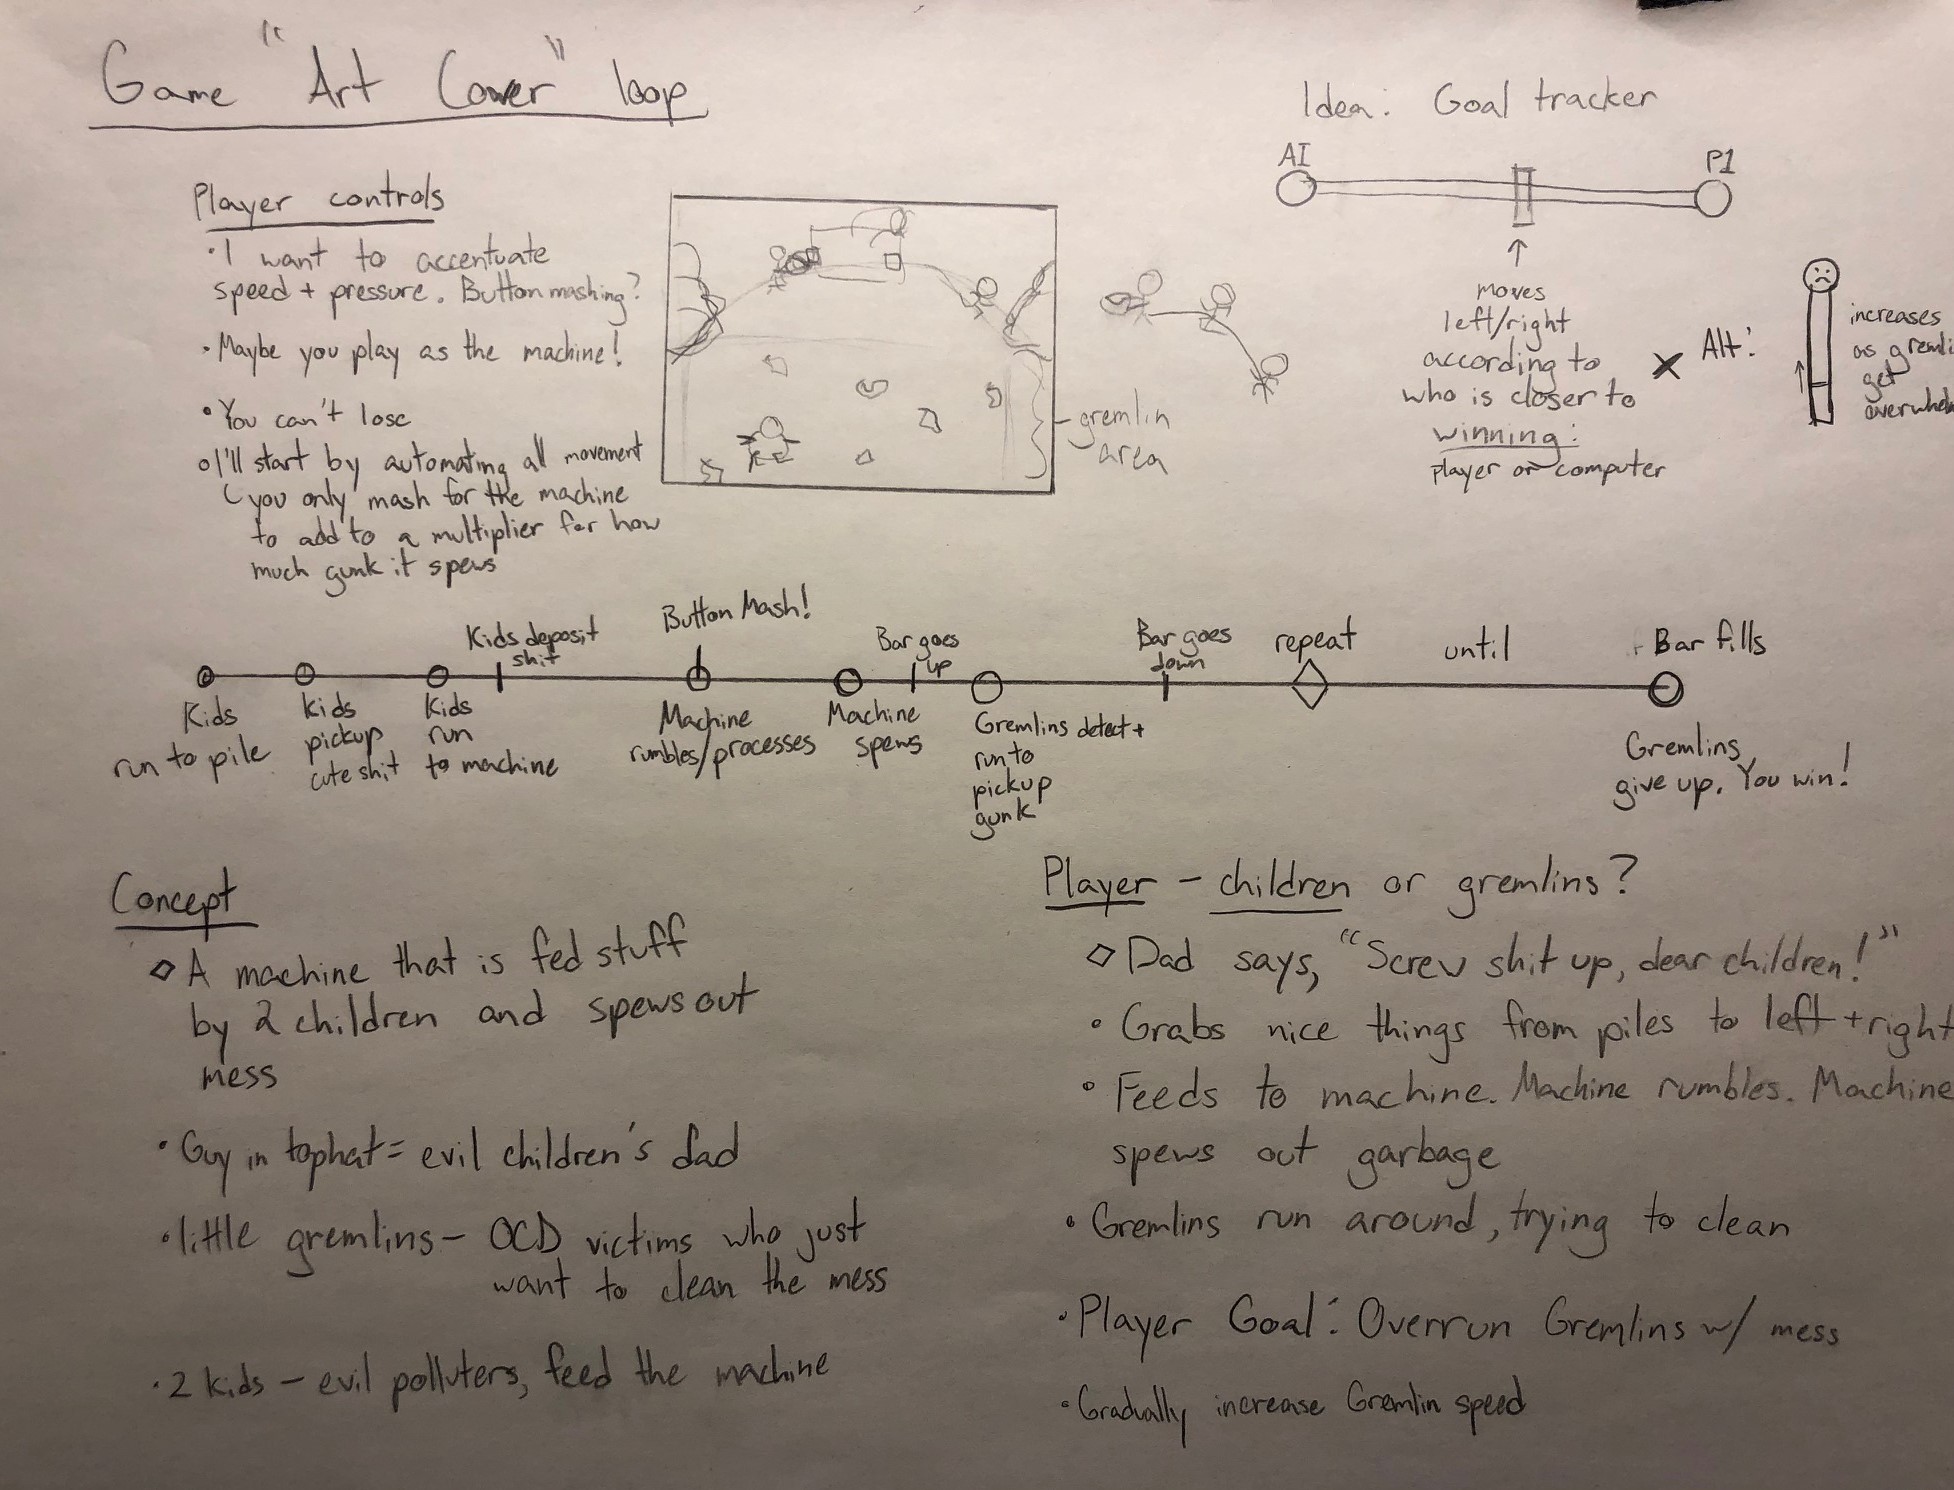 Game "Art Cover" loop
Player controls
• I want to accentuate
speed + pressure. Button mashing?
• Maybe you play as the machine!
• You can't lose
○ I'll start by automating all movement
( you only mash for the machine
to add to a multiplier for how
much gunk it spews
gremlin
area
Idea: Goal tracker
AI
P1
↑
moves
left/right
according to
who is closer to
winning:
player or computer
x Alt:
↑
increases
as gremli
get
overwhel
Kids deposit
shit
Button Mash!
Bar goes
up
Bar goes
down
repeat
until
Bar fills
Kids
run to pile
Kids
pickup
cute shit
Kids
run
to machine
Machine
rumbles/processes
Machine
spews
Gremlins detect +
run to
pickup
gunk
Gremlins
give up. You win!
Concept
◇ A machine that is fed stuff
by 2 children and spews out
mess
• Guy in tophat = evil children's dad
• little gremlins - OCD victims who just
want to clean the mess
• 2 kids - evil polluters, feed the machine
Player - children or gremlins?
◇ Dad says, "Screw shit up, dear children!"
• Grabs nice things from piles to left + right
• Feeds to machine. Machine rumbles. Machine
spews out garbage
• Gremlins run around, trying to clean
• Player Goal: Overrun Gremlins w/ mess
• Gradually increase Gremlin speed